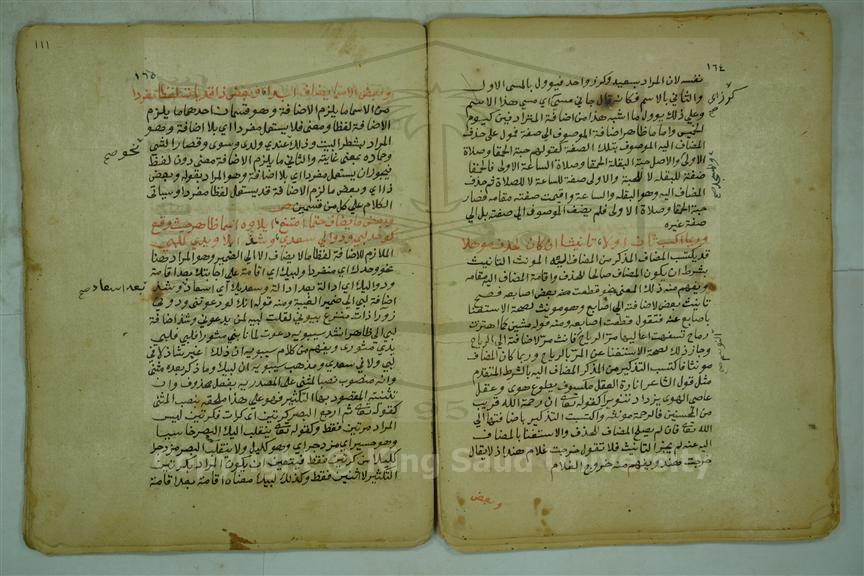 ١٦٤
نفسه لان المراد بسعيد وكرز واحد فيوول بالمسمى الاول
والثاني بالاسم فكانه قال جاني مسمى اي مسمى هذا الاسم
وعلى ذلك يوول ما اشبه هذا من اضافة المترادفين كيوم
الخميس واما ما ظاهره اضافة الموصوف الى صفته فمول على حذف
المضاف اليه الموصوف بتلك الصفة كقولهم حبة الحمقا وصلاة
الاولى والاصل حبة البقلة الحمقا وصلاة الساعة الاولى فالحمقا
صفة للبقلة لا للحبة والاولى صفة للساعة لا للصلاة ثم حذف
المضاف اليه وهو البقلة والساعة واقيمت صفته مقامه فصار
حبة الحمقا وصلاة الاولى فلم يضف الموصوف الى صفته بل الى
صفة غيره
وربما اكسب ثان اولا تانيثا ان كان لحذف موهلا
قد يكتسب المضاف المذكر من المضاف اليه المونث التانيث
بشرط ان يكون المضاف صالحا للحذف واقامة المضاف اليه مقامه
ويفهم منه ذلك المعنى نحو قطعت بعض اصابعه فصح
تانيث بعض لاضافته الى اصابع وهو مونث لصحة الاستغنا
باصابع عنه فتقول قطعت اصابعه ومنه قوله مشين كما اهتزت
رماح تسفهت اعاليها مر الرياح فانث مر لاضافته الى الرياح
وجاز ذلك لصحة الاستغنا عن المر بالرياح وربما كان المضاف
مونثا فاكتسب التذكير من المذكر المضاف اليه بالشرط المتقدم
مثل قول الشاعر انارة العقل مكسوف بطوع هوى وعقل
عاصي الهوى يزداد تنويرا كقوله تعالى ان رحمة الله قريب
من المحسنين فالرحمة مونثة واكتسبت التذكير باضافتها الى
الله تعالى فان لم يصلح المضاف للحذف والاستغنا بالمضاف
اليه عنه لم يجز التانيث فلا تقول خرجت غلام هند اذ لا يقال
خرجت هند ويفهم منه خروج الغلام
وبعض
١١١
١٦٥
وبعض الاسما يضاف ابدا وبعض ذا قد يات لفظا مفردا
من الاسما ما يلزم الاضافة وهو قسمان احدهما ما يلزم
الاضافة لفظا ومعنى فلا يستعمل مفردا اي بلا اضافة وهو
المراد بشطر البيت وذلك عندي ولدى وسوى وقصارا الشي
وحماده بمعنى غايته والثاني ما يلزم الاضافة معنى دون لفظ
فيجوز ان يستعمل مفردا اي بلا اضافة وهو المراد بقوله وبعض
ذا اي وبعض ما لزم الاضافة قد يستعمل لفظا مفردا وسياتي
الكلام على كل من قسمين
وبعض ما يضاف حتما امتنع ايلاوه اسما ظاهرا حيث وقع
كوحد لبي ودوالي سعدي وشذ ايلا يدي للبي
الملازم للاضافة لفظا ما لا يضاف الا الى الضمير وهو المراد هنا
نحو وحدك اي منفردا ولبيك اي اقامة على اجابتك بعد اقامة
ودواليك اي ادالة بعد ادالة وسعديك اي اسعادا وشذ
اضافة لبي الى ضمير الغيبة ومنه قوله انك لو دعوتني ودوني
زورا ذات منزع بيوني لقلت لبيه لمن يدعوني وشذ اضافة
لبي الى الظاهر انشد سيبويه دعوت لما نابني مسورا فلبى فلبي
يدي مسور ويفهم من كلام سيبويه ان ذلك غير شاذ
لبي ولا في سعدي ومذهب سيبويه ان لبيك وما ذكر بعده مثنى
وانه منصوب نصبا مثنى على المصدرية بفعل محذوف وان
تثنيته المقصود بها التكثير فهو على هذا ملحق بالمثنى
كقوله تعالى ثم ارجع البصر كرتين اي كرات فكرتين ليس
المراد مرتين فقط ولقوله تعالى ينقلب اليك البصر خاسيا
وهو حسير اي مزدجرا وهو كليل ولا ينقلب البصر مزدجرا
كليلا من كرتين فقط فيتعين ان يكون المراد بكرتين
التكثير لا اثنين فقط وكذلك لبيك معناه اقامة بعد اقامة
نحو صح
بعد اسعاد صح